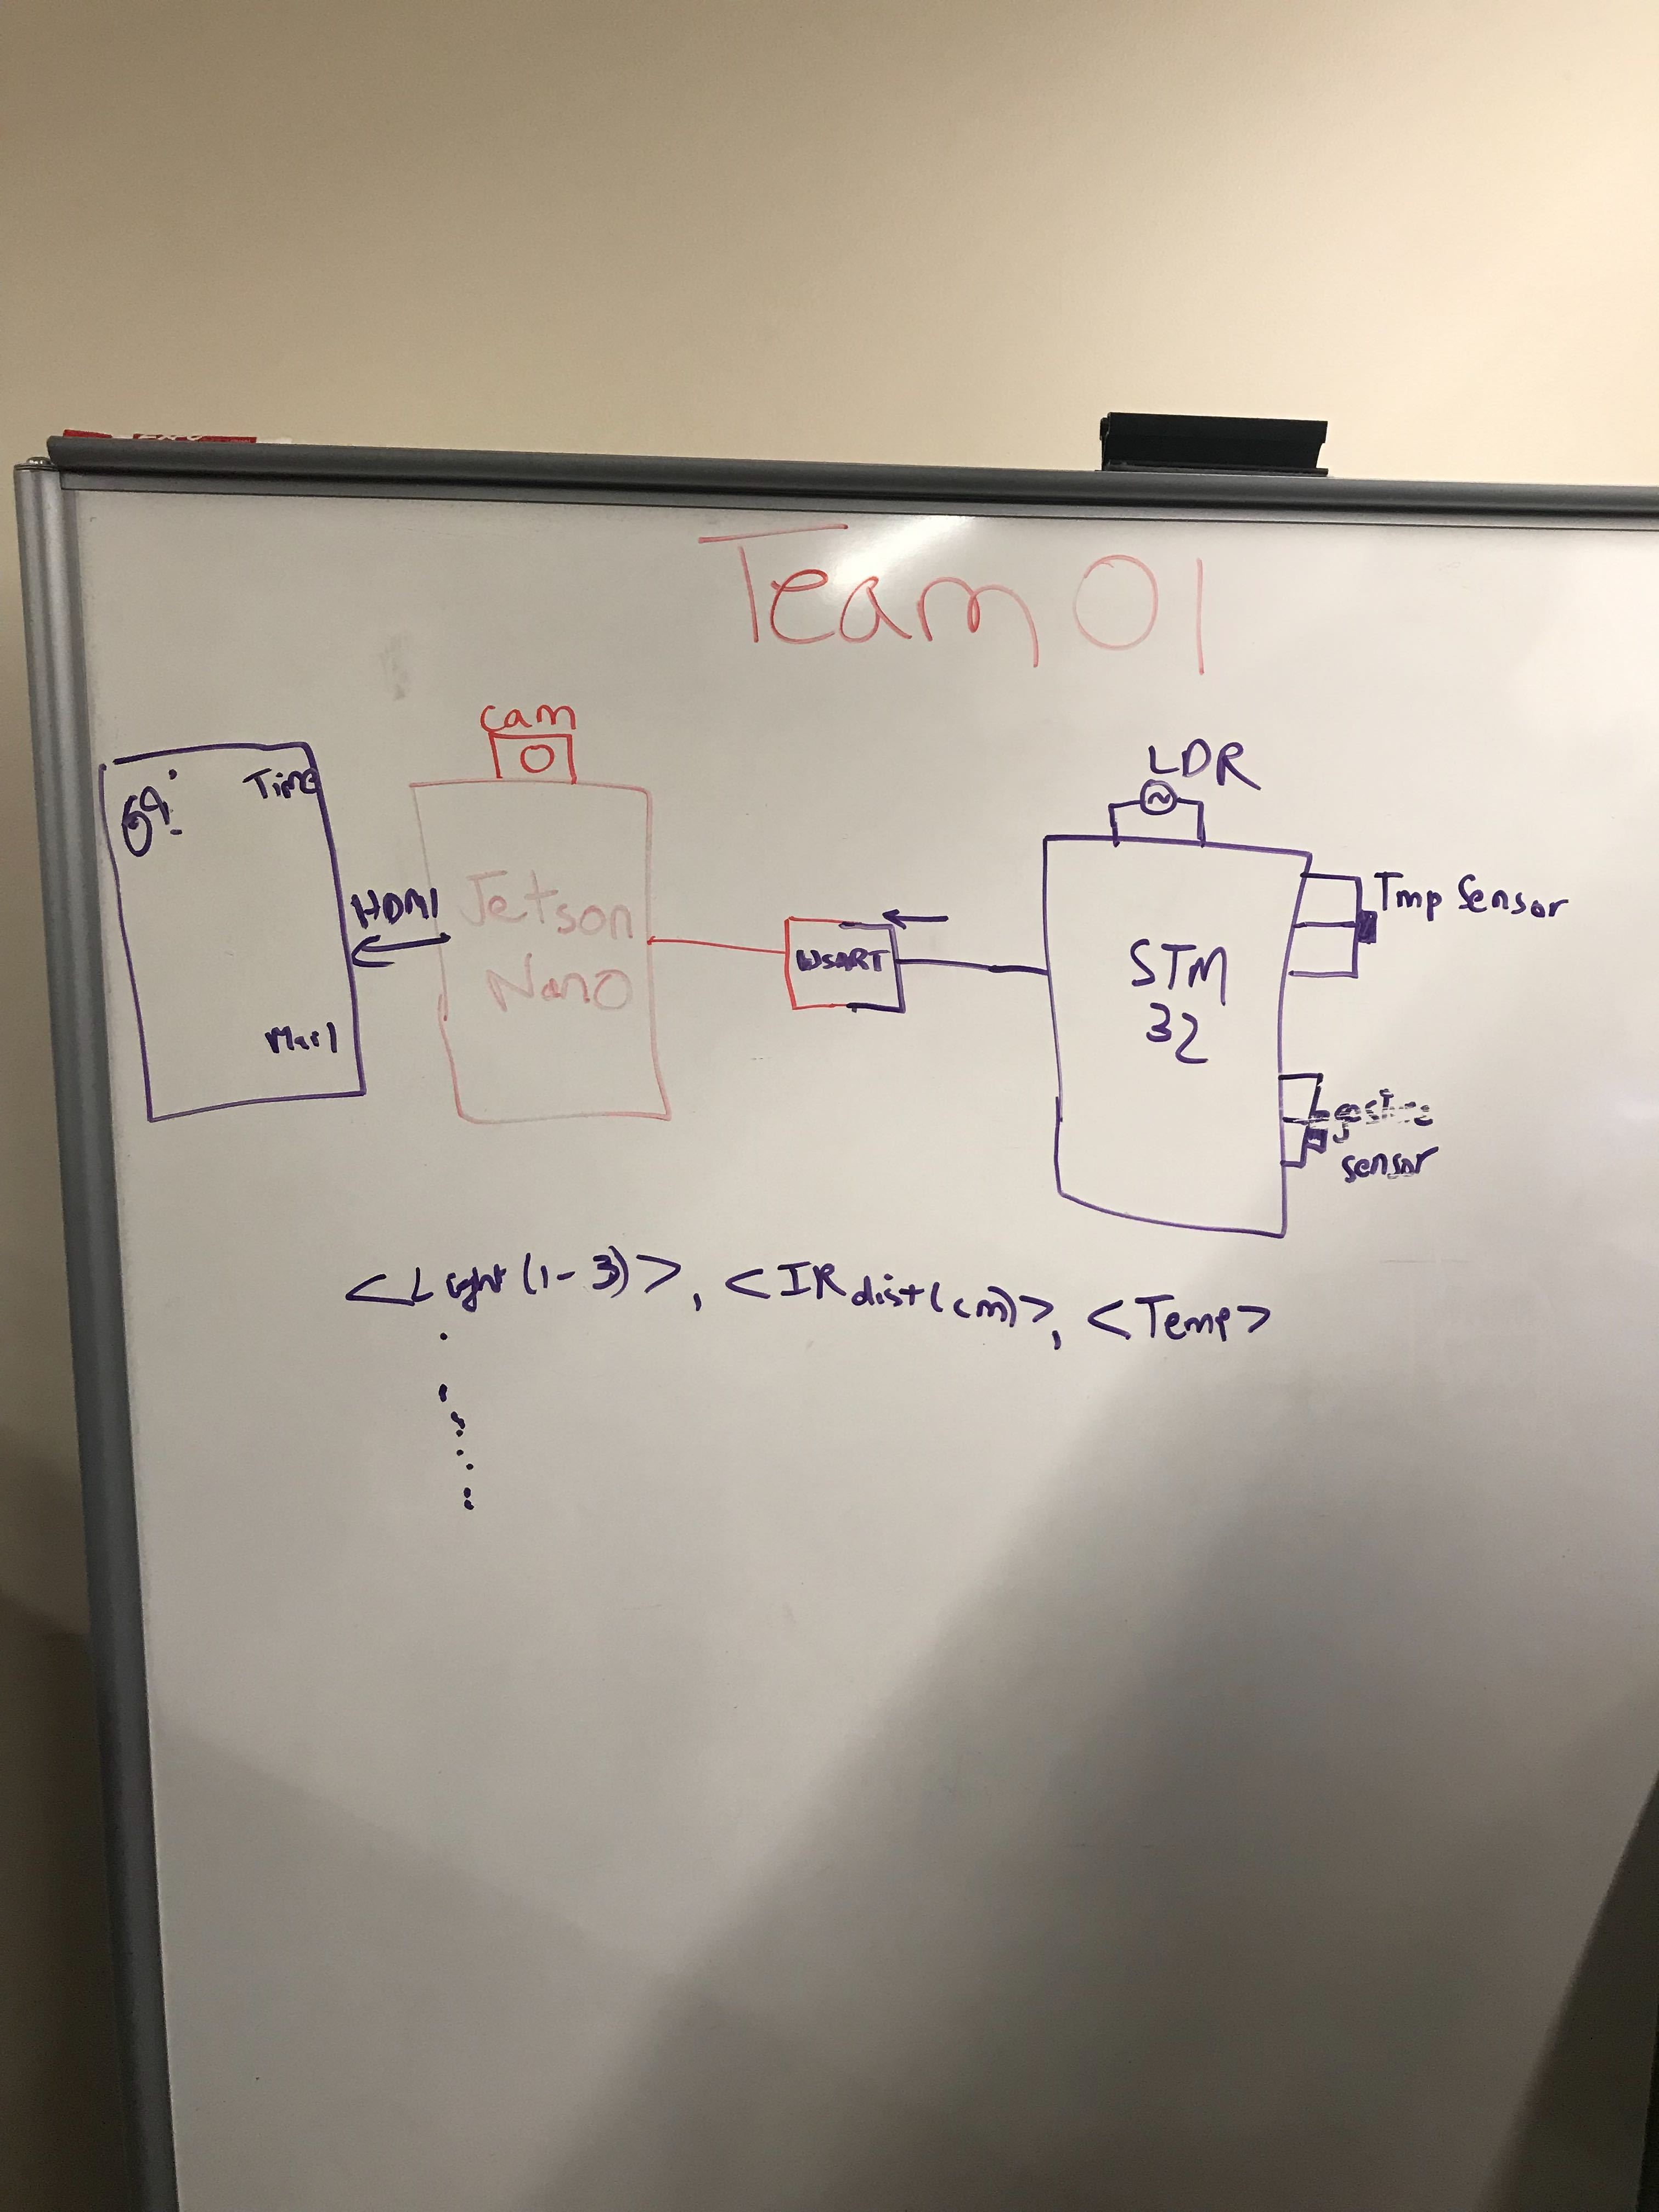 Team 01
cam
LDR
Time
HDMI
Jetson
Nano
USART
STM
32
Tmp Sensor
Mail
gesture
sensor
<Light(1-3)>, <IR dist(cm)>, <Temp>